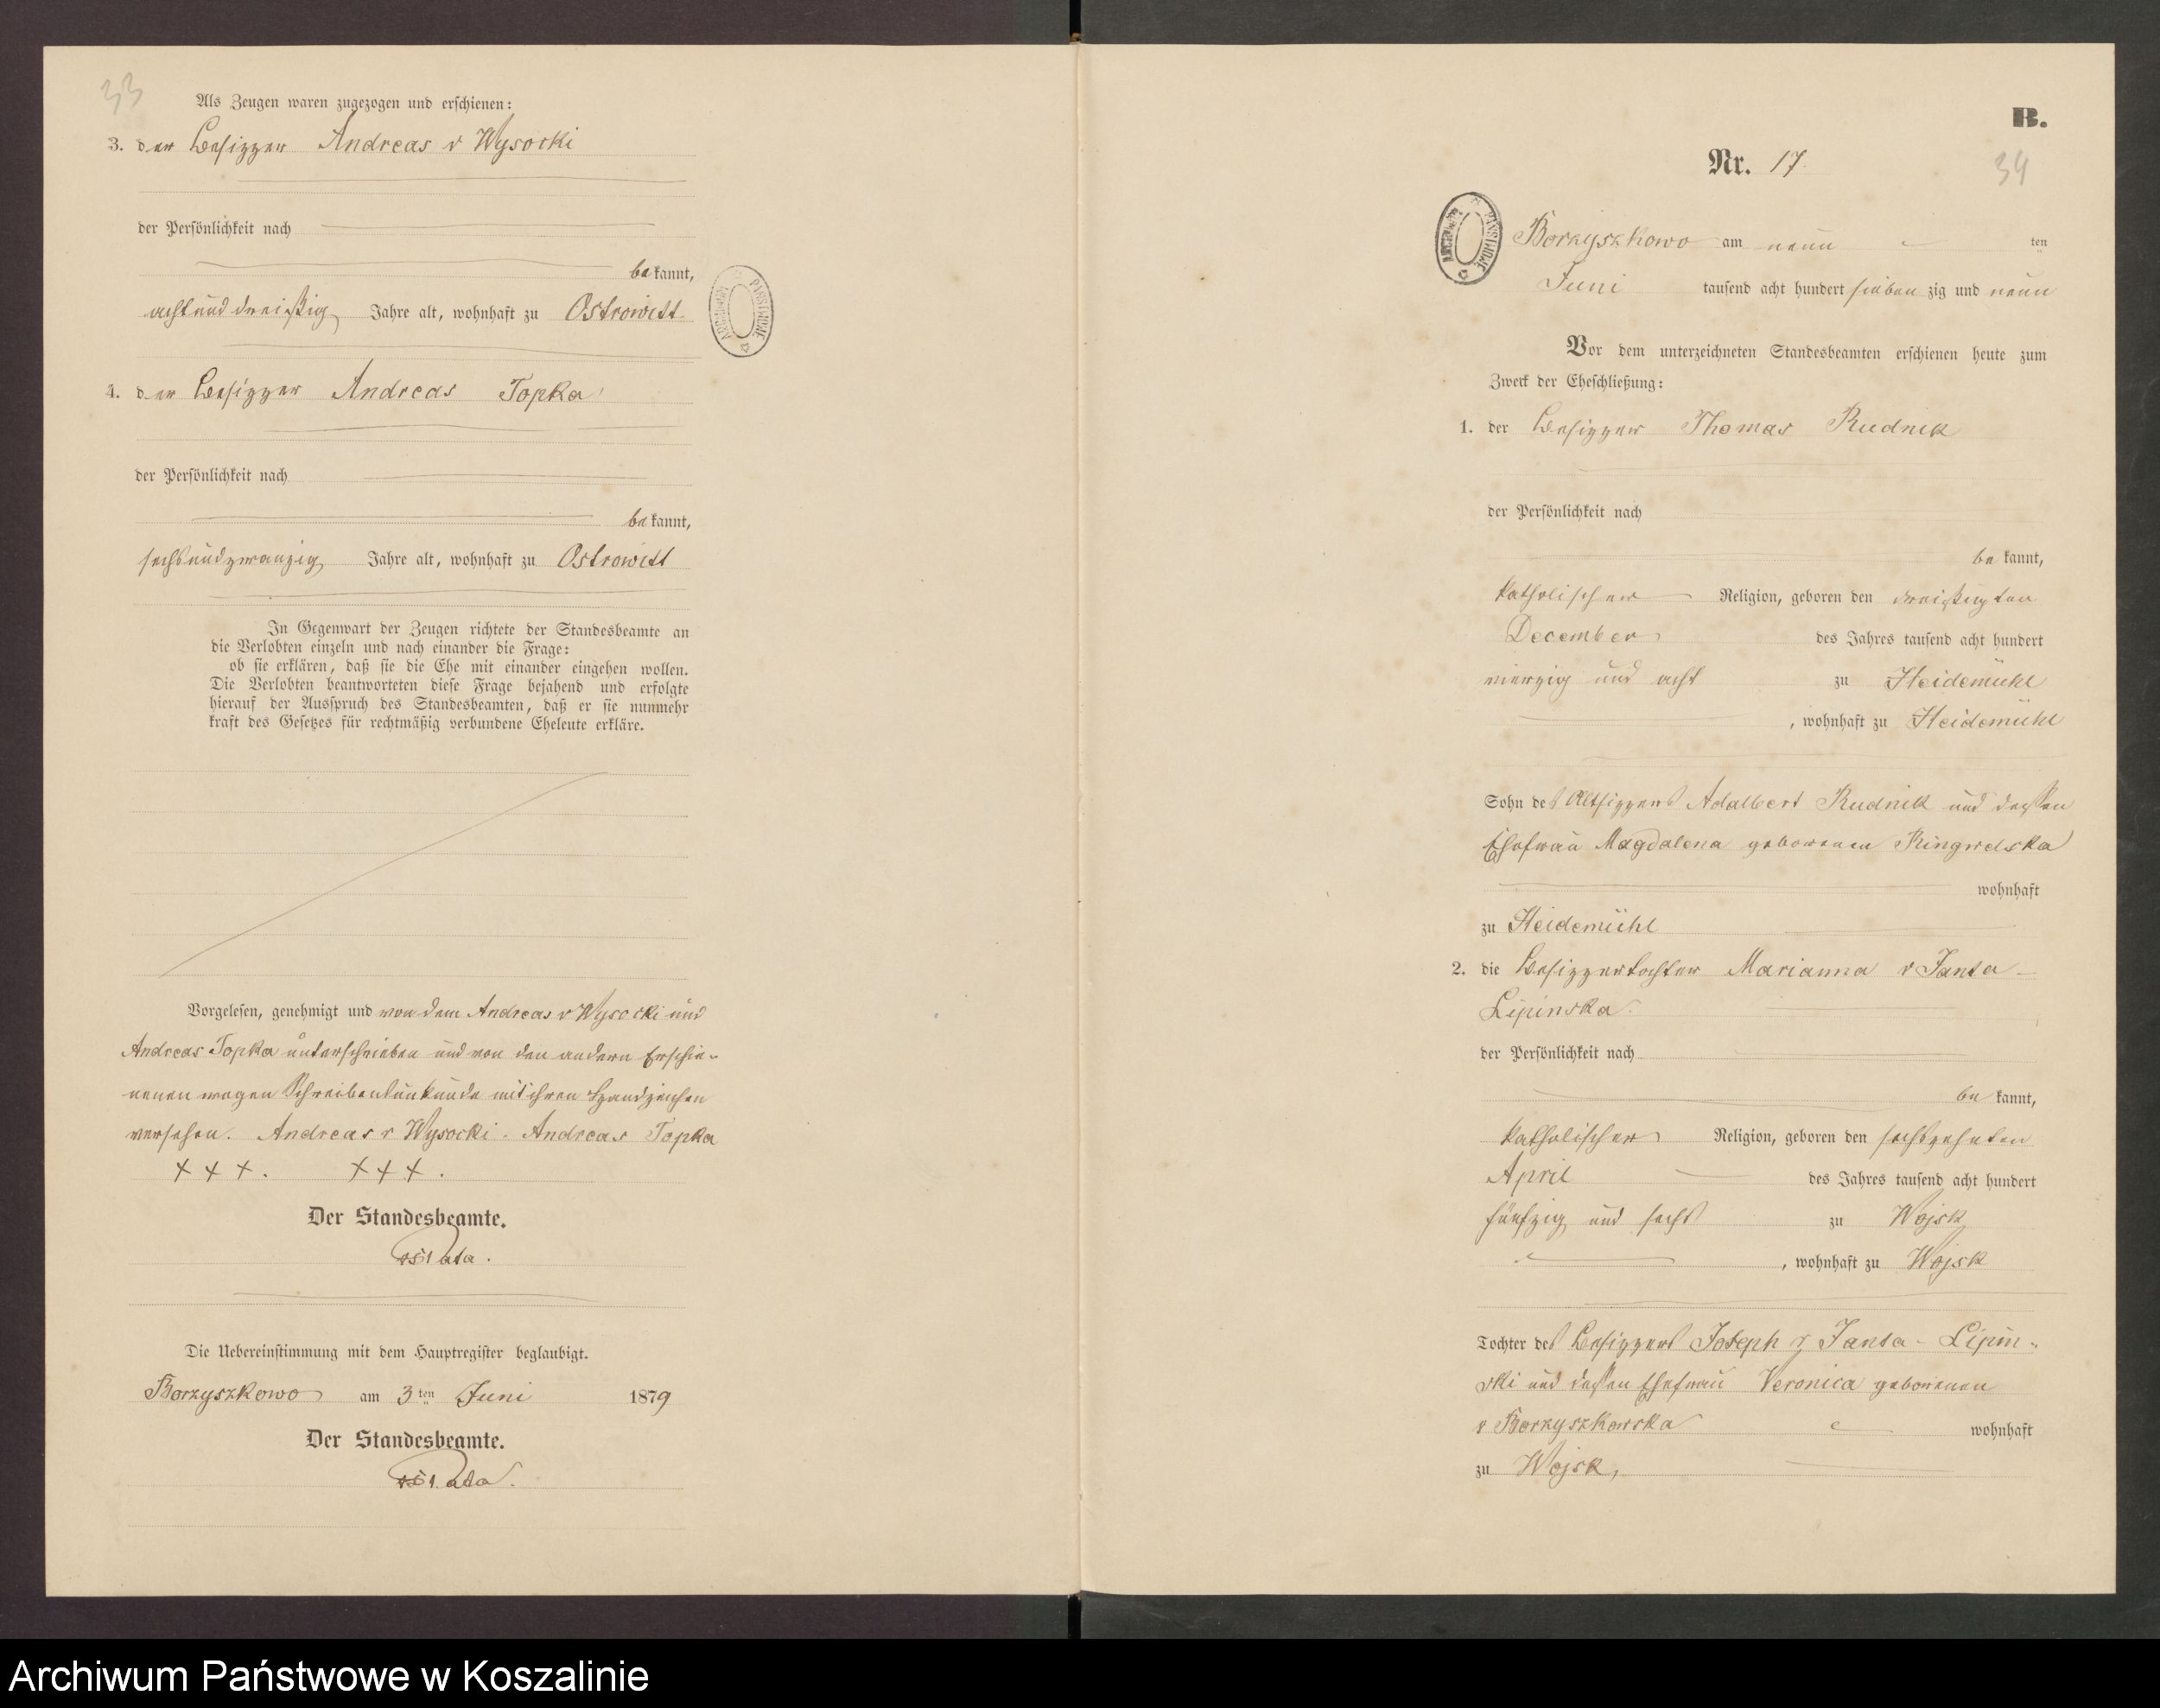 33
Als Zeugen waren zugezogen und erschienen:
3. der Besitzer Andreas v Wysocki
der Persönlichkeit nach
bekannt,
achtunddreißig Jahre alt, wohnhaft zu Ostrowitt
4. der Besitzer Andreas Topka
der Persönlichkeit nach
bekannt,
sechsundzwanzig Jahre alt, wohnhaft zu Ostrowitt
In Gegenwart der Zeugen richtete der Standesbeamte an
die Verlobten einzeln und nach einander die Frage:
ob sie erklären, daß sie die Ehe mit einander eingehen wollen.
Die Verlobten beantworteten diese Frage bejahend und erfolgte
hierauf der Ausspruch des Standesbeamten, daß er sie nunmehr
kraft des Gesetzes für rechtmäßig verbundene Eheleute erkläre.
Vorgelesen, genehmigt und von dem Andreas v Wysocki und
Andreas Topka unterschrieben und von den andern Erschie-
nenen wegen Schreibensunkunde mit ihren Handzeichen
versehen. Andreas v Wysocki. Andreas Topka
+ + +. + + +.
Der Standesbeamte.
Die Uebereinstimmung mit dem Hauptregister beglaubigt.
Borzyszkowo am 3ten Juni 1879
Der Standesbeamte.
ARCHIWUM PAŃSTWOWE
B.
Nr. 17.
34
ARCHIWUM PAŃSTWOWE
Borzyszkowo am neun ten
Juni tausend acht hundert siebenzig und neun
Vor dem unterzeichneten Standesbeamten erschienen heute zum
Zweck der Eheschließung:
1. der Besitzer Thomas Rudnik
der Persönlichkeit nach
bekannt,
katholischer Religion, geboren den dreißigsten
December des Jahres tausend acht hundert
vierzig und acht zu Heidemühl
, wohnhaft zu Heidemühl
Sohn des Altsitzers Adalbert Rudnik und dessen
Ehefrau Magdalena geborenen
wohnhaft
zu Heidemühl
2. die Besitzertochter Marianna v Janta-
Lipinska.
der Persönlichkeit nach
bekannt,
katholischer Religion, geboren den sechszehnten
April des Jahres tausend acht hundert
fünfzig und sechs zu Wojsk
, wohnhaft zu Wojsk
Tochter des Besitzers Joseph v Janta-Lipin-
ski und dessen Ehefrau Veronica geborenen
v Borzyszkowska wohnhaft
zu Wojsk,
Archiwum Państwowe w Koszalinie